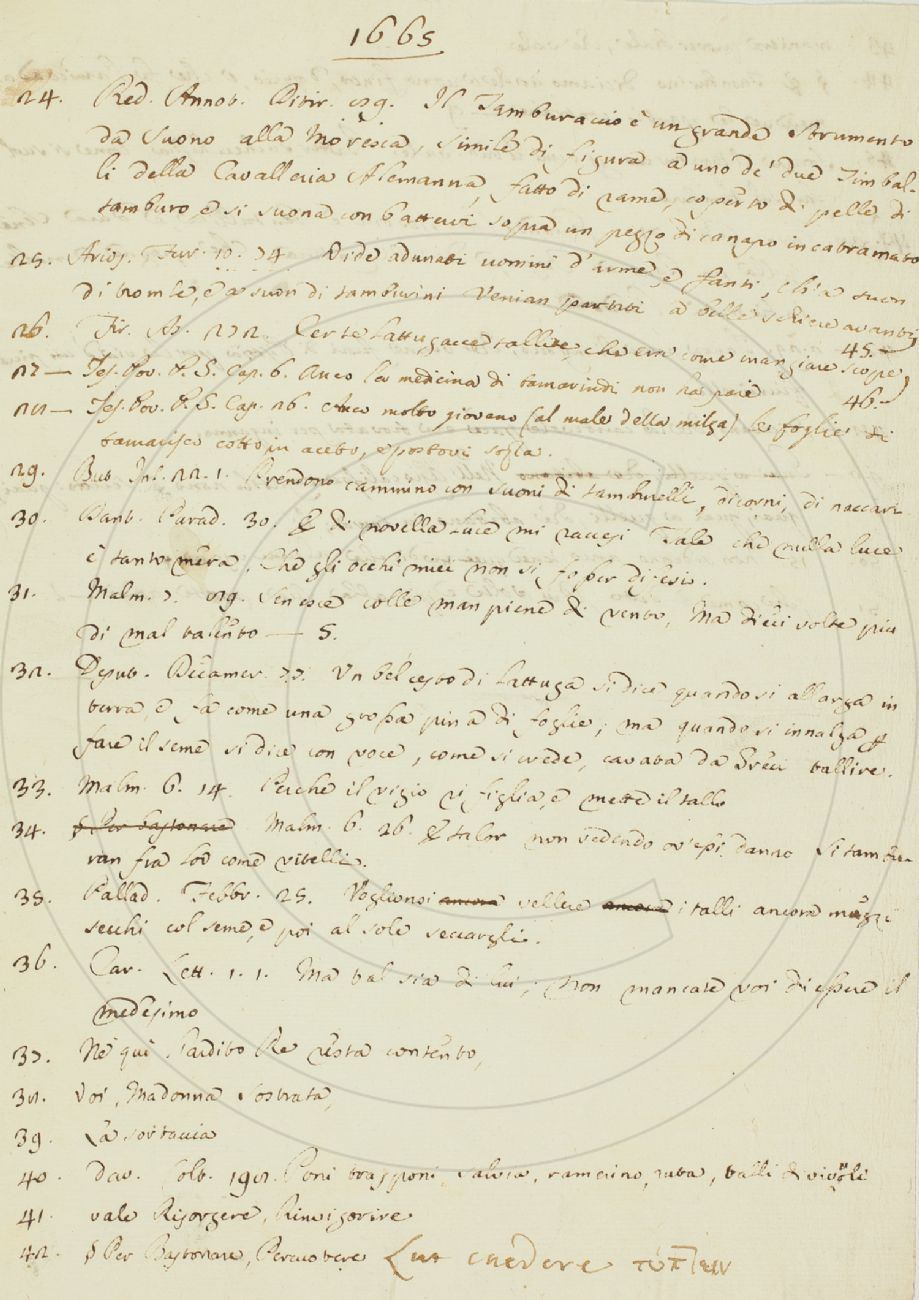 1665
24. Red. Annot. Ditir. 89. Il Tamburaccio è un grande strumento
da suono alla Moresca, simile di figura a uno de' due Timbal-
li della Cavalleria Alemanna, fatto di rame, coperto di pelle di
tamburo, e si suona con battervi sopra un pezzo di canapo incatramato
25. Arios. Fur. 10. 74. Vide adunati uomini d'arme, e fanti, Ch'a suon
di trombe, e a suon di tamburini Venian partiti a belle schiere avanti
26. Fir. As. 272. Certe lattugacce tallite, che era come mangiare scope,
45.
27 — Tes. Pov. P. S. Cap. 6. Anco la medicina di tamarindi non ha pare
46.
28 — Tes. Pov. P. S. Cap. 26. Anco molto giovano (al male della milza) le foglie di
tamarisco cotto in aceto, e postovi sopra.
29. But. Inf. 22. 1. Prendono cammino con suoni di tamburelli, di corni, di naccari
30. Dant. Parad. 30. E di novella luce mi raccesi Tale che nulla luce
è tanto mera, Che gli occhi miei non si fosser difesi.
31. Malm. 7. 89. Sen'esce colle man piene di vento, Ma dieci volte più
di mal talento — S.
32. Deput. Decamer. 77. Un bel cesto di lattuga si dice quando si allarga in
terra, e fa come una grossa pina di foglie; ma quando si innalza p
fare il seme si dice con voce, come si crede, cavata da Greci tallire.
33. Malm. 6. 14. Perchè il vizio vi figlia, e mette il tallo
34. § Per bastonare Malm. 6. 26. E talor non vedendo ov'essi danno Si tambu-
ran fra lor come vitelli.
35. Pallad. Febbr. 25. Voglionsi ancora vellere ancora i talli ancora mezzi
secchi col seme, e poi al sole seccargli.
36. Car. Lett. 1. 1. Ma tal sia di lui; non mancate voi di essere il
medesimo
37. Nè quì l'ardito Re resta contento,
38. Voi, Madonna Sostrata,
39. La sortaccia
40. Dav. Colt. 198. Poni trapponi, salvia, ramerino, ruta, talli di vivuoli
41. vale Risorgere, Rinvigorire
42. § Per Bastonare, Percuotere Lat caedere τύπτειν